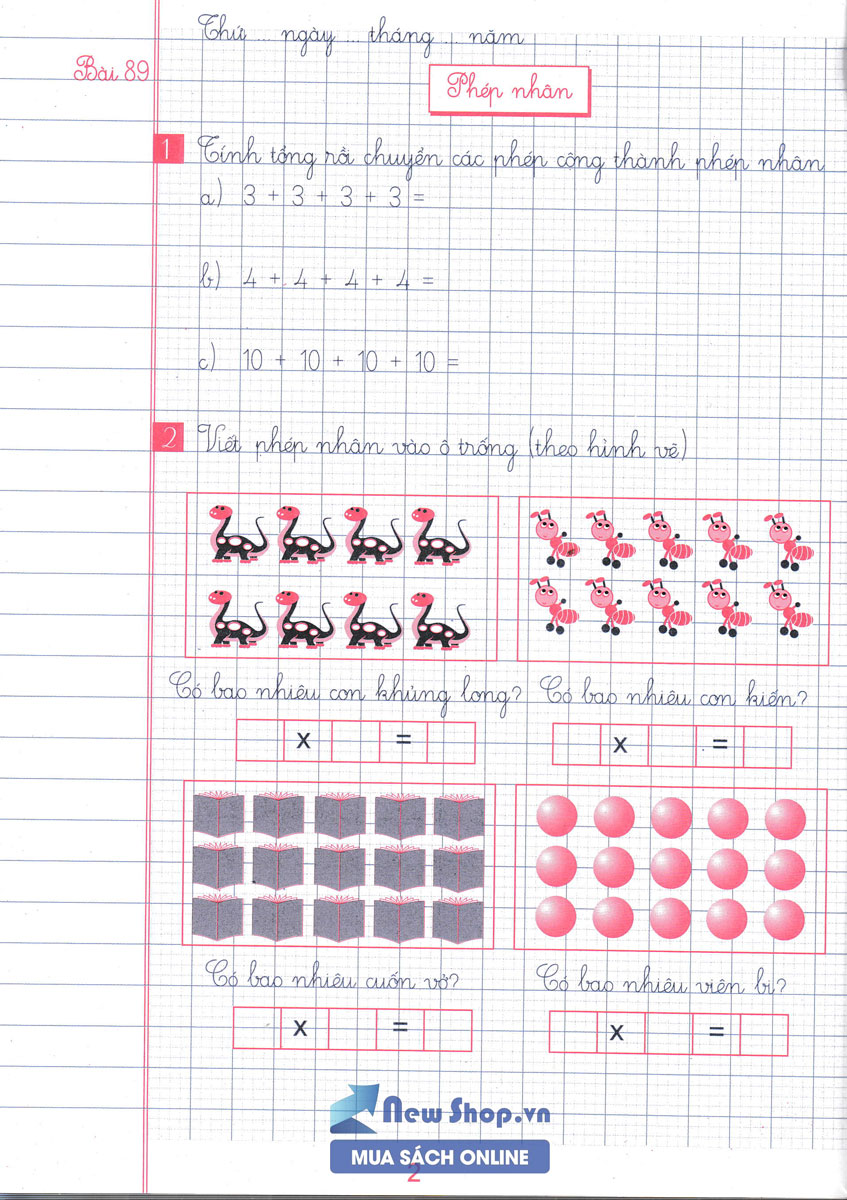 Thứ ... ngày ... tháng ... năm
Bài 89
Phép nhân
1 Tính tổng rồi chuyển các phép cộng thành phép nhân
a) 3 + 3 + 3 + 3 =
b) 4 + 4 + 4 + 4 =
c) 10 + 10 + 10 + 10 =
2 Viết phép nhân vào ô trống (theo hình vẽ)
Có bao nhiêu con khủng long? Có bao nhiêu con kiến?
x = x =
Có bao nhiêu cuốn vở? Có bao nhiêu viên bi?
x = x =
New Shop.vn
MUA SÁCH ONLINE
2